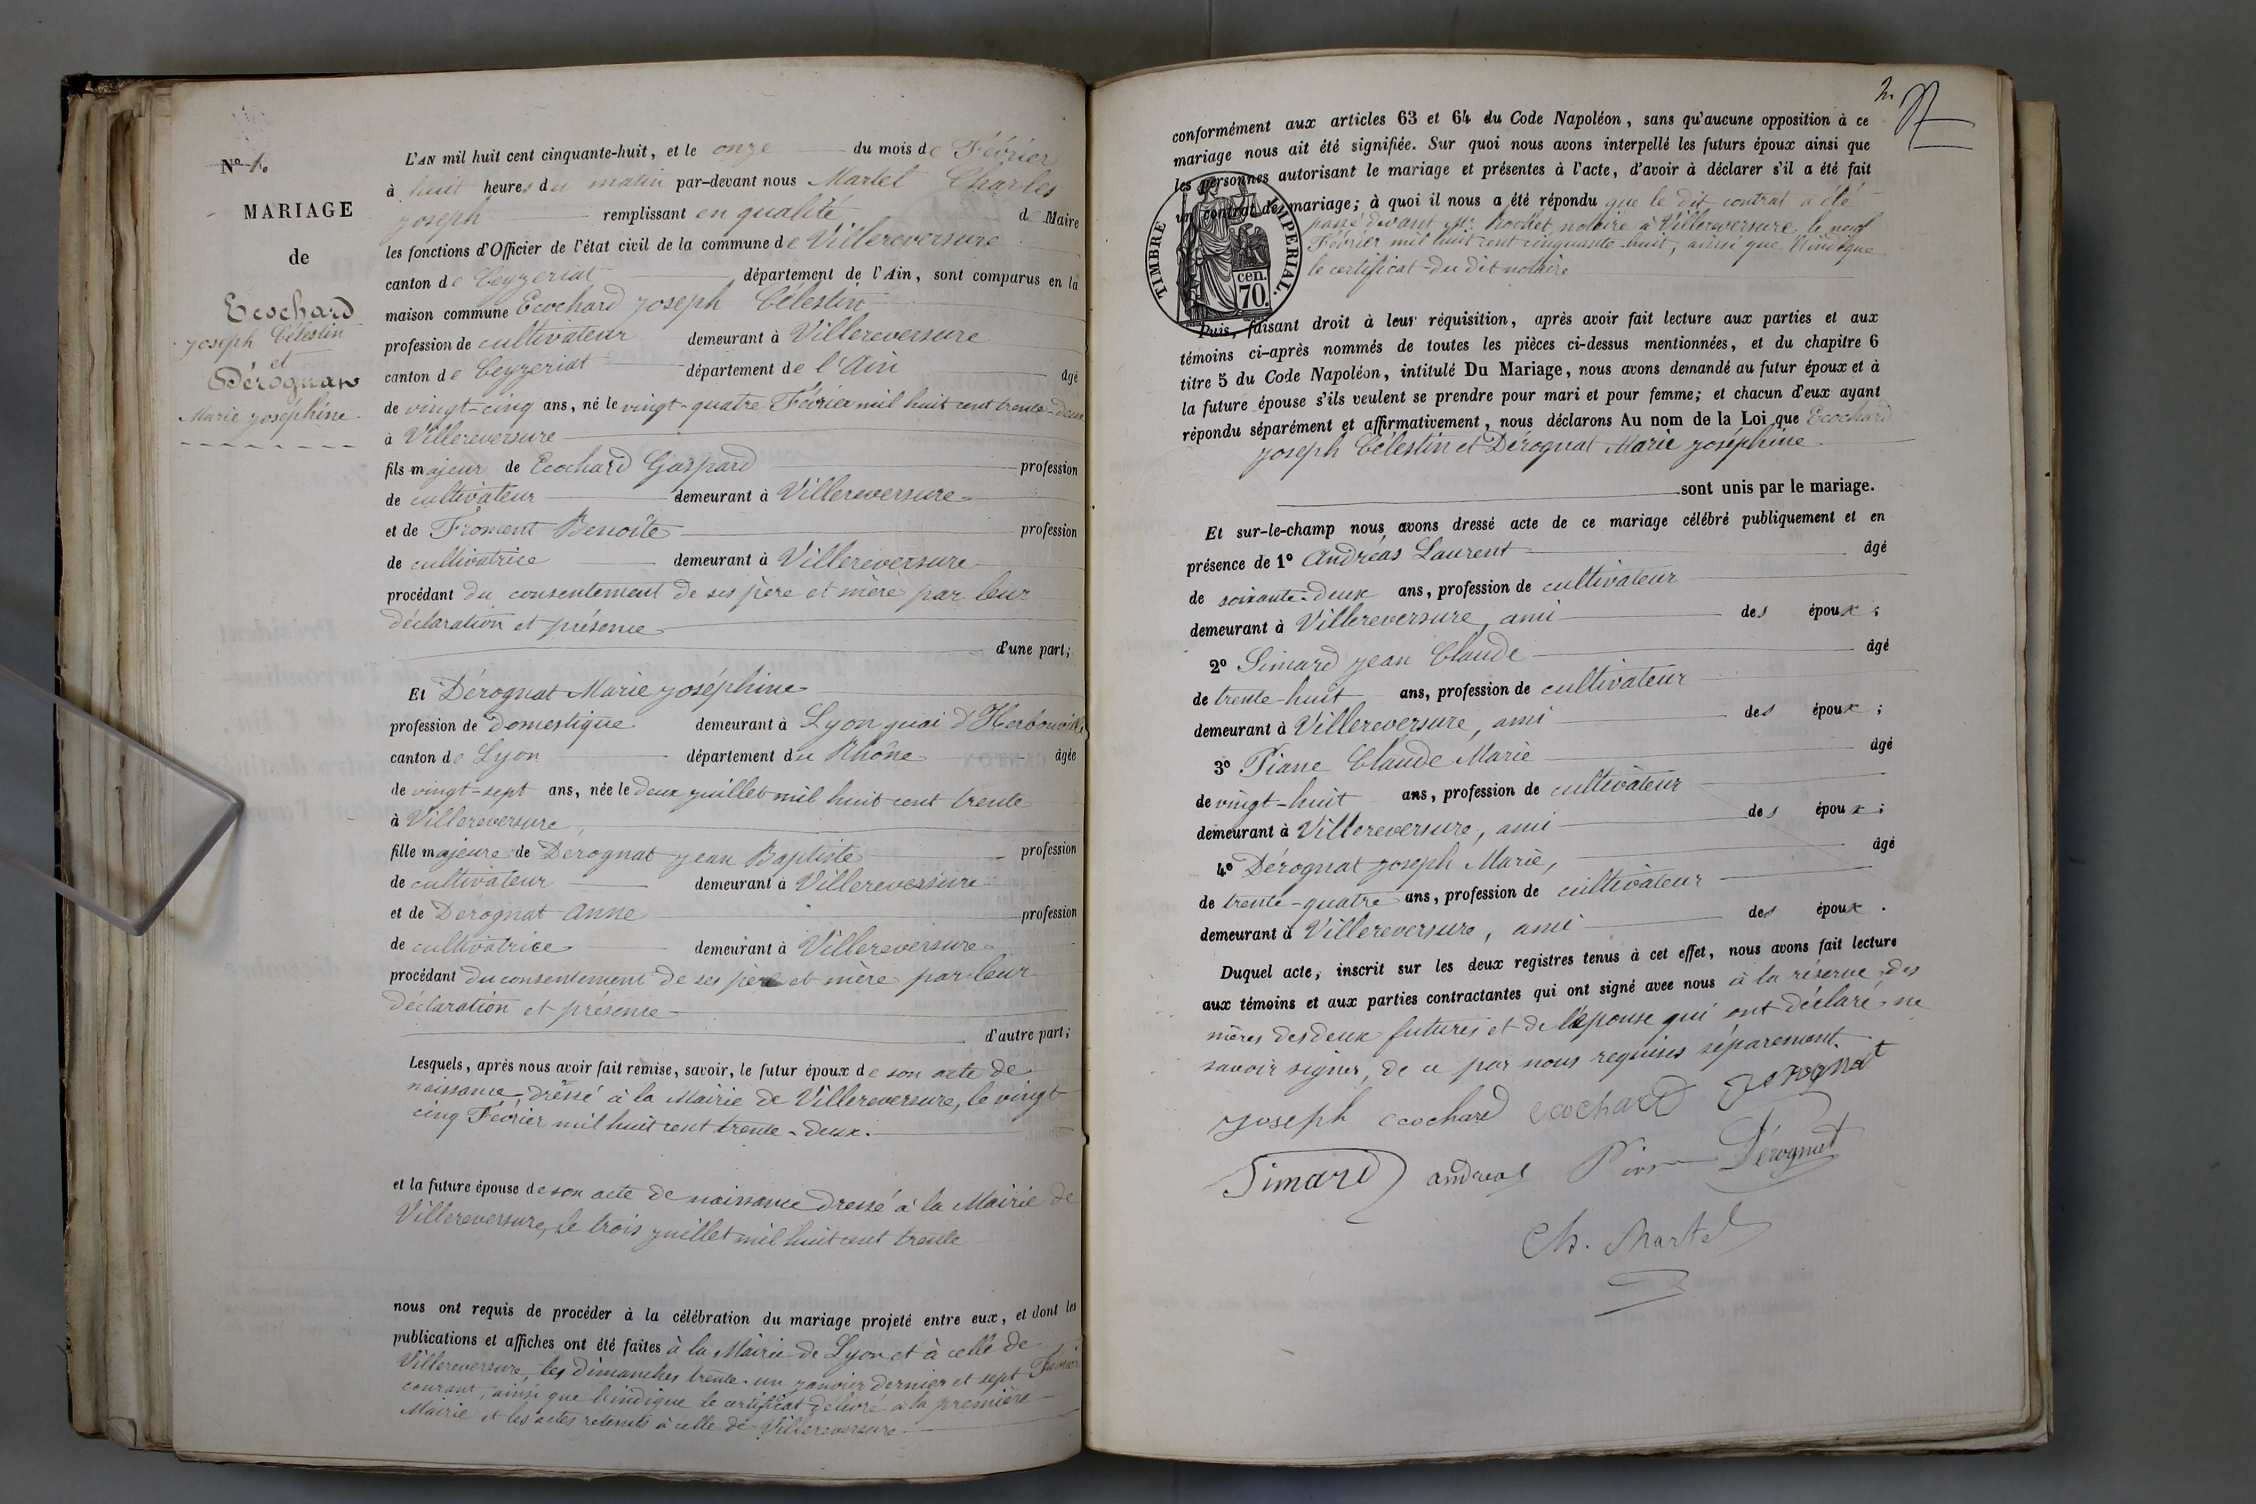 Nº 1.
MARIAGE
de
Ecochard
Joseph Célestin
et
Dérognat
Marie Joséphine
L'AN mil huit cent cinquante-huit, et le onze du mois de Février
à huit heures du matin par-devant nous Martel Charles
Joseph remplissant en qualité de Maire
les fonctions d'Officier de l'état civil de la commune de Villereversure
canton de Ceyzeriat département de l'Ain, sont comparus en la
maison commune Ecochard Joseph Célestin
profession de cultivateur demeurant à Villereversure
canton de Ceyzeriat département de l'Ain âgé
de vingt-cinq ans, né le vingt-quatre Février mil huit cent trente-deux
à Villereversure
fils majeur de Ecochard Gaspard profession
de cultivateur demeurant à Villereversure
et de Froment Benoîte profession
de cultivatrice demeurant à Villereversure
procédant du consentement de ses père et mère par leur
déclaration et présence
d'une part;
Et Dérognat Marie Joséphine
profession de domestique demeurant à Lyon quai d'Herbouville
canton de Lyon département du Rhône âgée
de vingt-sept ans, née le deux juillet mil huit cent trente
à Villereversure,
fille majeure de Derognat Jean Baptiste profession
de cultivateur demeurant à Villereversure
et de Derognat Anne profession
de cultivatrice demeurant à Villereversure
procédant du consentement de ses père et mère par leur
déclaration et présence
d'autre part;
Lesquels, après nous avoir fait remise, savoir, le futur époux de son acte de
naissance, dressé à la Mairie de Villereversure, le vingt
cinq Février mil huit cent trente-deux.
et la future épouse de son acte de naissance dressé à la Mairie de
Villereversure, le trois juillet mil huit cent trente
nous ont requis de procéder à la célébration du mariage projeté entre eux, et dont les
publications et affiches ont été faites à la Mairie de Lyon et à celle de
Villereversure, les dimanches trente-un janvier dernier et sept Février
courant, ainsi que l'indique le certificat délivré à la première
Mairie et les actes retenus à celle de Villereversure
conformément aux articles 63 et 64 du Code Napoléon, sans qu'aucune opposition à ce
mariage nous ait été signifiée. Sur quoi nous avons interpellé les futurs époux ainsi que
les personnes autorisant le mariage et présentes à l'acte, d'avoir à déclarer s'il a été fait
un contrat de mariage; à quoi il nous a été répondu que le dit contrat a été
passé devant Me Rochet, notaire à Villereversure le neuf
Février mil huit cent cinquante-huit, ainsi que l'indique
le certificat du dit notaire
TIMBRE IMPERIAL.
cen.
70.
Puis, faisant droit à leur réquisition, après avoir fait lecture aux parties et aux
témoins ci-après nommés de toutes les pièces ci-dessus mentionnées, et du chapitre 6
titre 5 du Code Napoléon, intitulé Du Mariage, nous avons demandé au futur époux et à
la future épouse s'ils veulent se prendre pour mari et pour femme; et chacun d'eux ayant
répondu séparément et affirmativement, nous déclarons Au nom de la Loi que Ecochard
Joseph Célestin et Dérognat Marie Joséphine
sont unis par le mariage.
Et sur-le-champ nous avons dressé acte de ce mariage célébré publiquement et en
présence de 1º Andréas Laurent âgé
de soixante-deux ans, profession de cultivateur
demeurant à Villereversure, ami des époux;
2º Simard Jean Claude âgé
de trente-huit ans, profession de cultivateur
demeurant à Villereversure, ami des époux;
3º Piane Claude Marie âgé
de vingt-huit ans, profession de cultivateur
demeurant à Villereversure, ami des époux;
4º Dérognat Joseph Marie, âgé
de trente-quatre ans, profession de cultivateur
demeurant à Villereversure, ami des époux.
Duquel acte, inscrit sur les deux registres tenus à cet effet, nous avons fait lecture
aux témoins et aux parties contractantes qui ont signé avec nous à la réserve des
mères des deux futures et de l'épouse qui ont déclaré ne
savoir signer, de ce par nous requises séparement.
Joseph ecochard ecochard Derognat
Simard andreas Dérognat
Ch. Martel